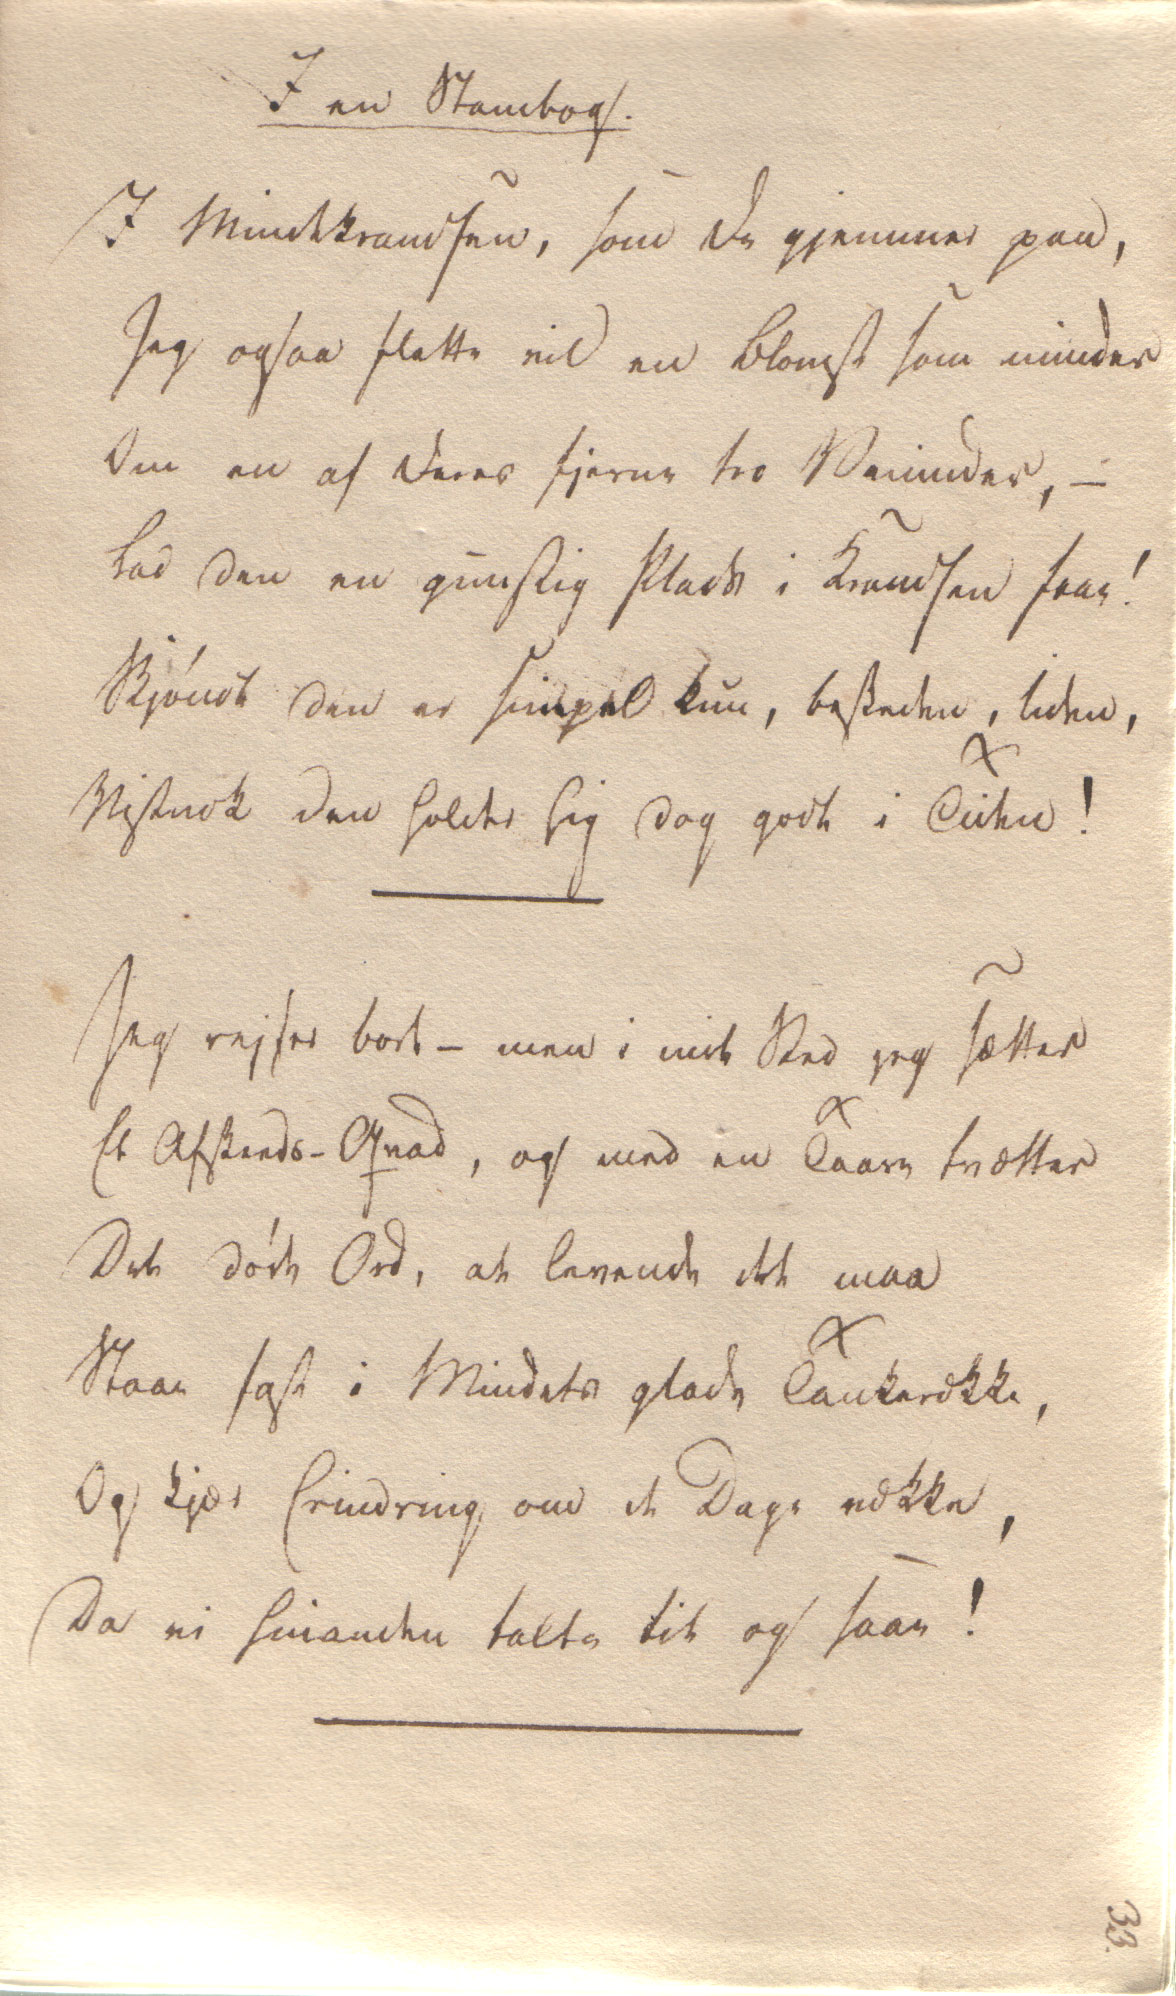 I en Stambog.
I Mindekrandsen, som De gjemmer paa,
Jeg ogsaa flette vil en Blomst som minder
Om en af Deres fjerne tro Veninder, –
Lad den en gunstig Plads i Krandsen faae!
Skjøndt den er simpel kun, beskeden, liden,
Vistnok den holder sig dog godt i Tiden!
Jeg rejser bort – men i mit Sted jeg sætter
Et Afskeds-Qvad, og med en Taare tvætter
Det døde Ord, at levende det maa
Staae fast i Mindets glade Tankerække,
Og kjær Erindring om de Dage vække,
Da vi hinanden talte tit og saae!
33.